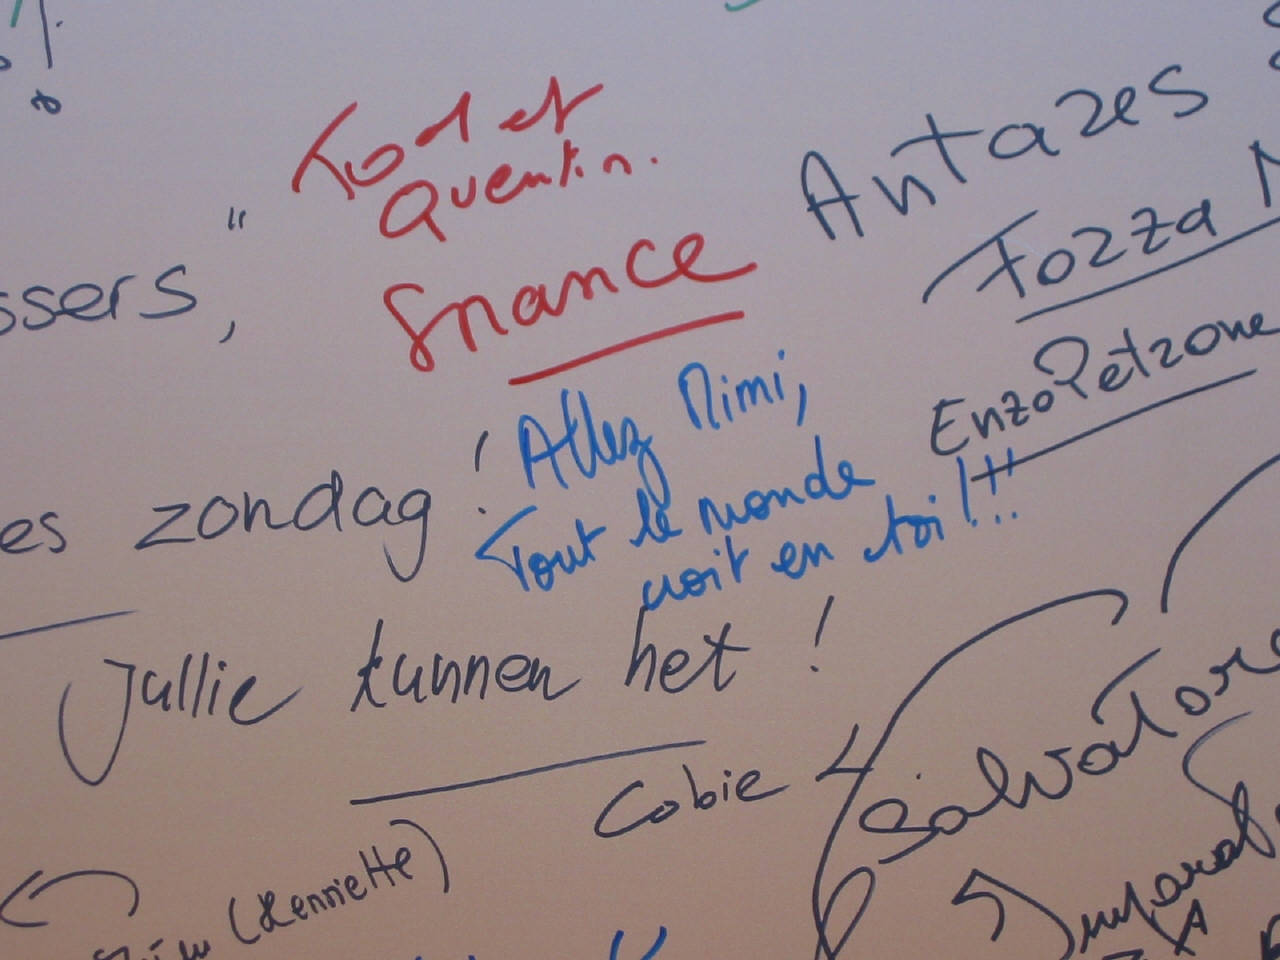 Tod et
Quentin.
France
Antares
Fozza
Enzo Petrone
ssers,
es zondag!
Allez Mimi,
Tout le monde
voit en toi!!!
Jullie kunnen het!
Cobie
Salvatore
(Henriette)